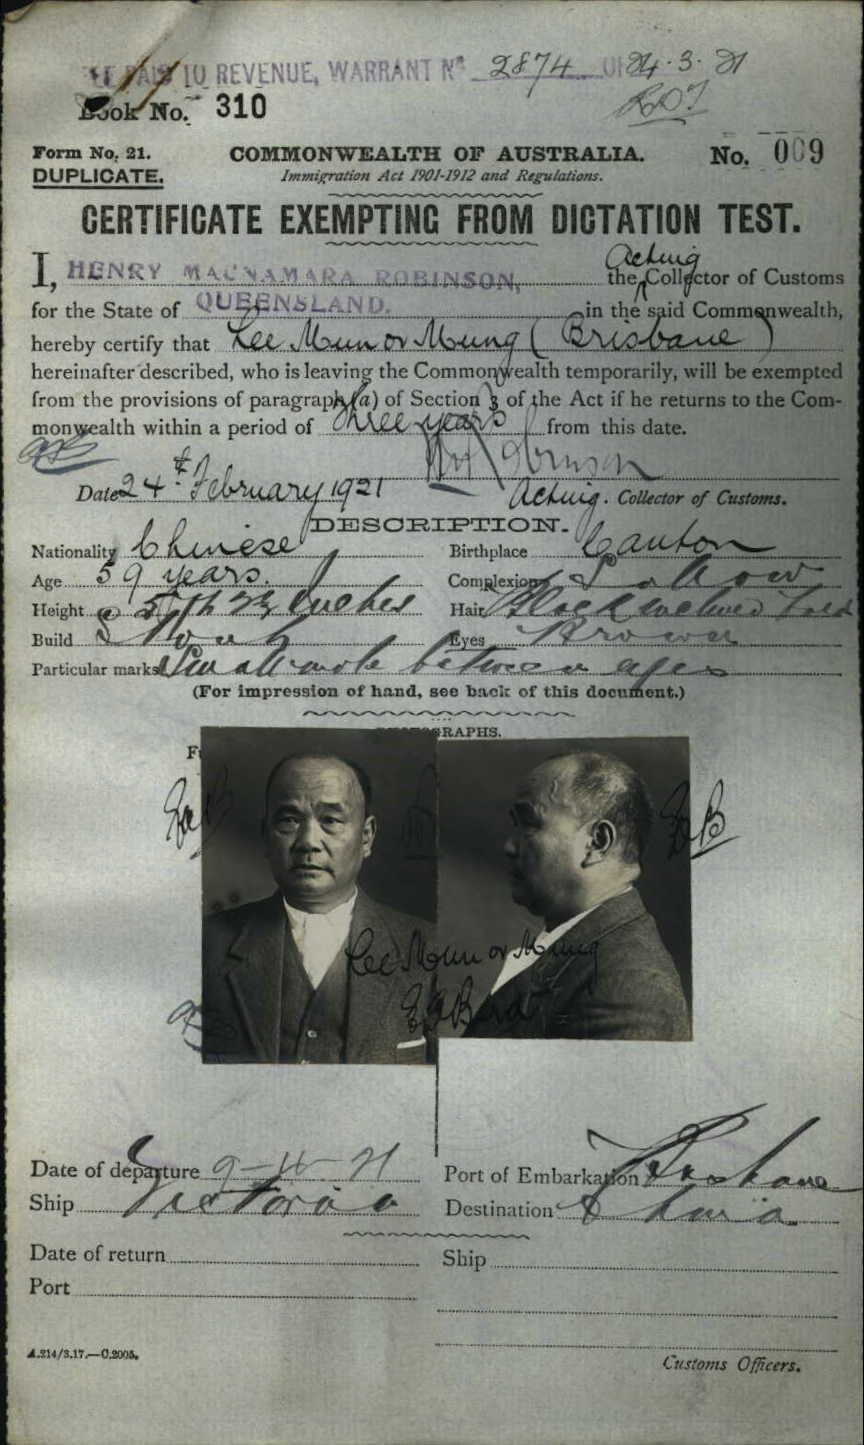 PAID TO REVENUE, WARRANT No. 2874 OF 24.3.21
Book No. 310
Form No. 21. COMMONWEALTH OF AUSTRALIA. No. 009
DUPLICATE. Immigration Act 1901-1912 and Regulations.
CERTIFICATE EXEMPTING FROM DICTATION TEST.
I, HENRY MACNAMARA ROBINSON, the Acting Collector of Customs
for the State of QUEENSLAND. in the said Commonwealth,
hereby certify that Lee Mun or Mung (Brisbane)
hereinafter described, who is leaving the Commonwealth temporarily, will be exempted
from the provisions of paragraph (a) of Section 3 of the Act if he returns to the Com-
monwealth within a period of three years from this date.
Date 24th February 1921 Acting. Collector of Customs.
DESCRIPTION.
Nationality Chinese Birthplace Canton
Age 59 years. Complexion Sallow
Height 5 ft Inches Hair Black
Build Stout Eyes Brown
Particular marks Small mole between eyes
(For impression of hand, see back of this document.)
GRAPHS.
Lee Mun or Mung
Date of departure 9-4-21 Port of Embarkation Brisbane
Ship Victoria Destination China
Date of return Ship
Port
A.214/3.17.—C.2005.
Customs Officers.